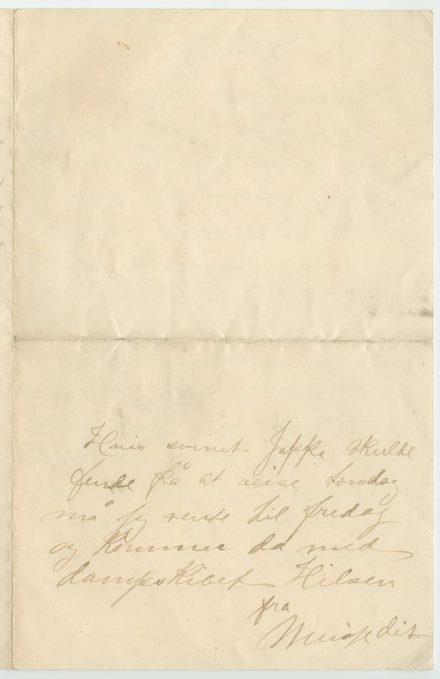 Hvis svinet Jappe skulde
finde på at reise torsdag
må jeg vente til fredag
og kommer da med
dampskibet Hilsen
fra